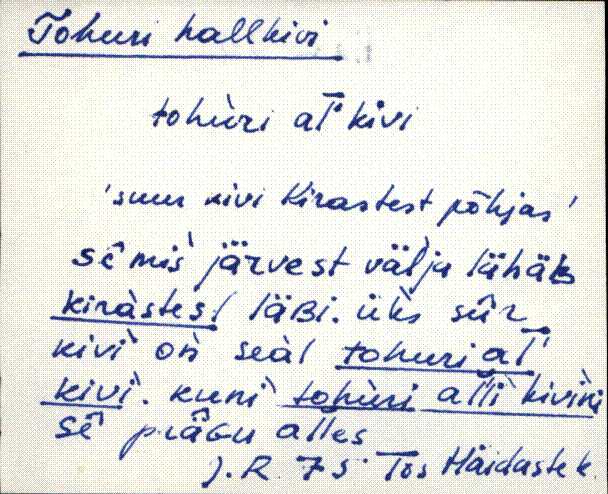 Tohuri hallkivi
tohùri al̅ kivi
'suur kivi Kirastest põhjas'
sê mis̀ järvest väl̀ja lähäb
kiràstest läbi. ük̀s sûr
kivì on̂ seàl tohuri al̅
kivì. kunì tohùri allì kivìni
sê präɢu alles
J. R. 75 Tos Häidastek